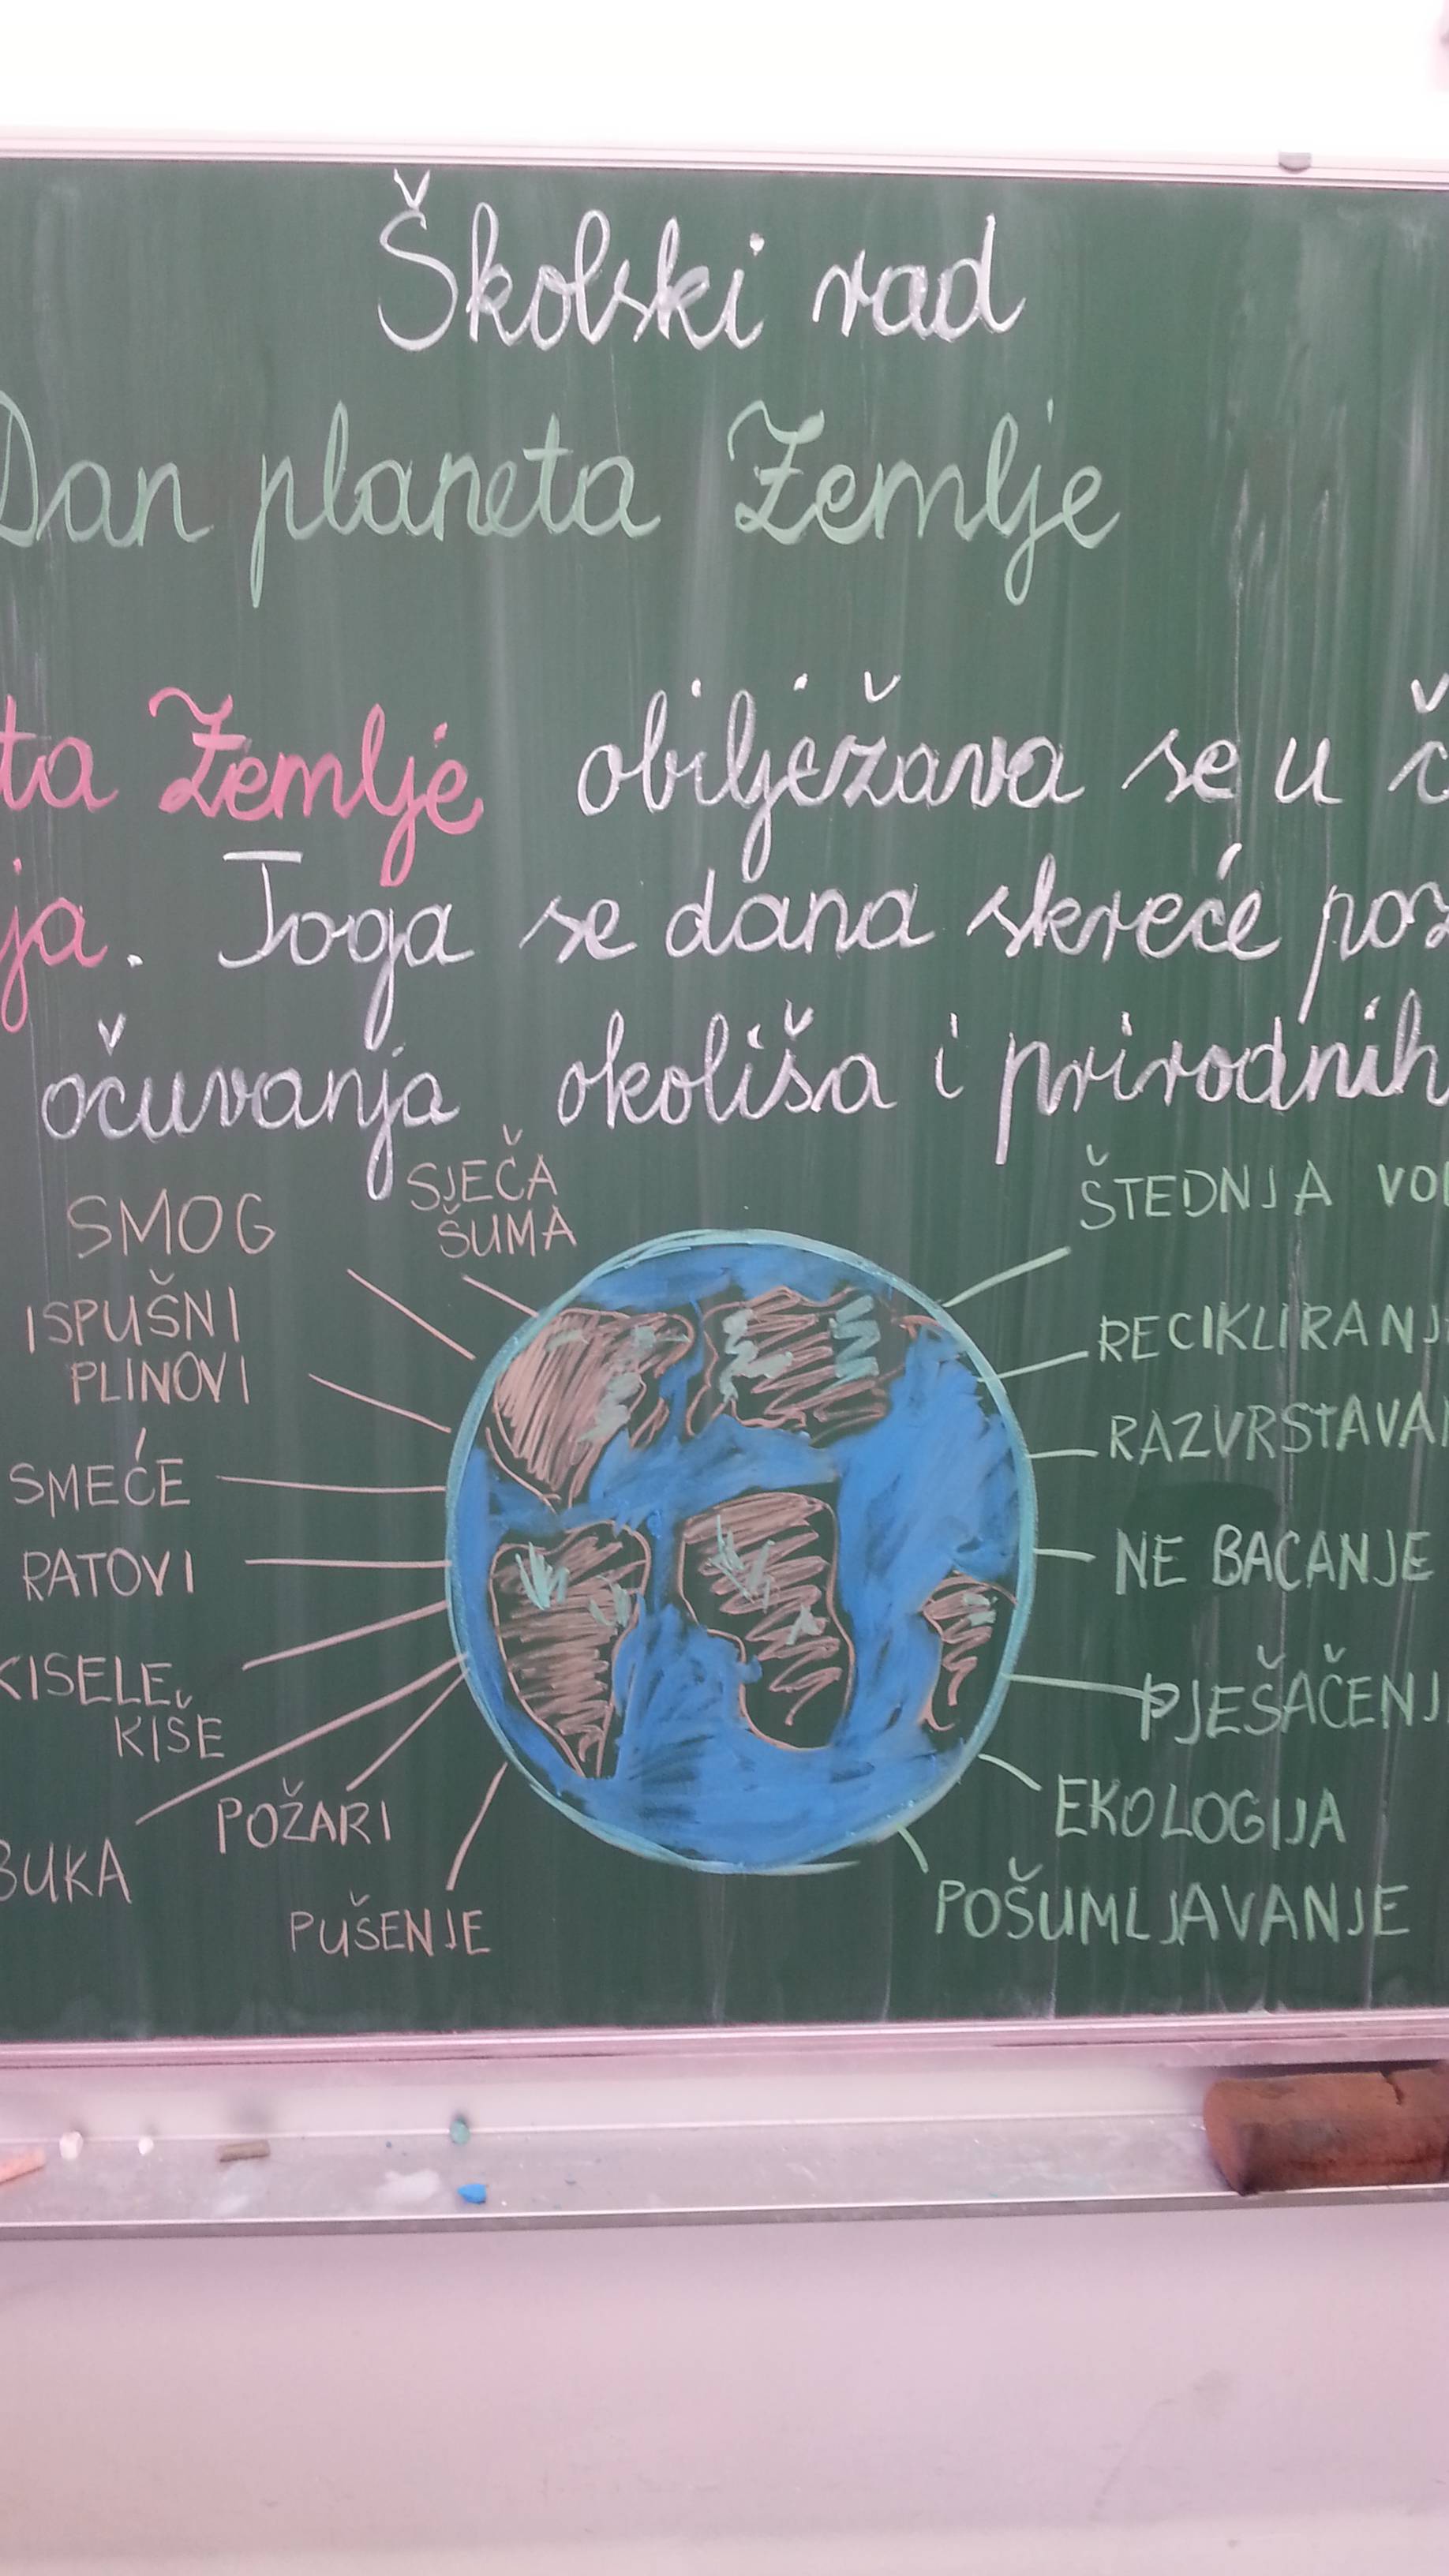 Školski rad
Dan planeta Zemlje
ta Zemlje obilježava se u č
ja. Toga se dana skreće poz
očuvanja okoliša i prirodnih
SMOG
SJEČA
ŠUMA
ISPUŠNI
PLINOVI
SMEĆE
RATOVI
KISELE
KIŠE
BUKA
POŽARI
PUŠENJE
ŠTEDNJA VO
RECIKLIRANJ
RAZVRSTAVA
NE BACANJE
PJEŠAČENJ
EKOLOGIJA
POŠUMLJAVANJE